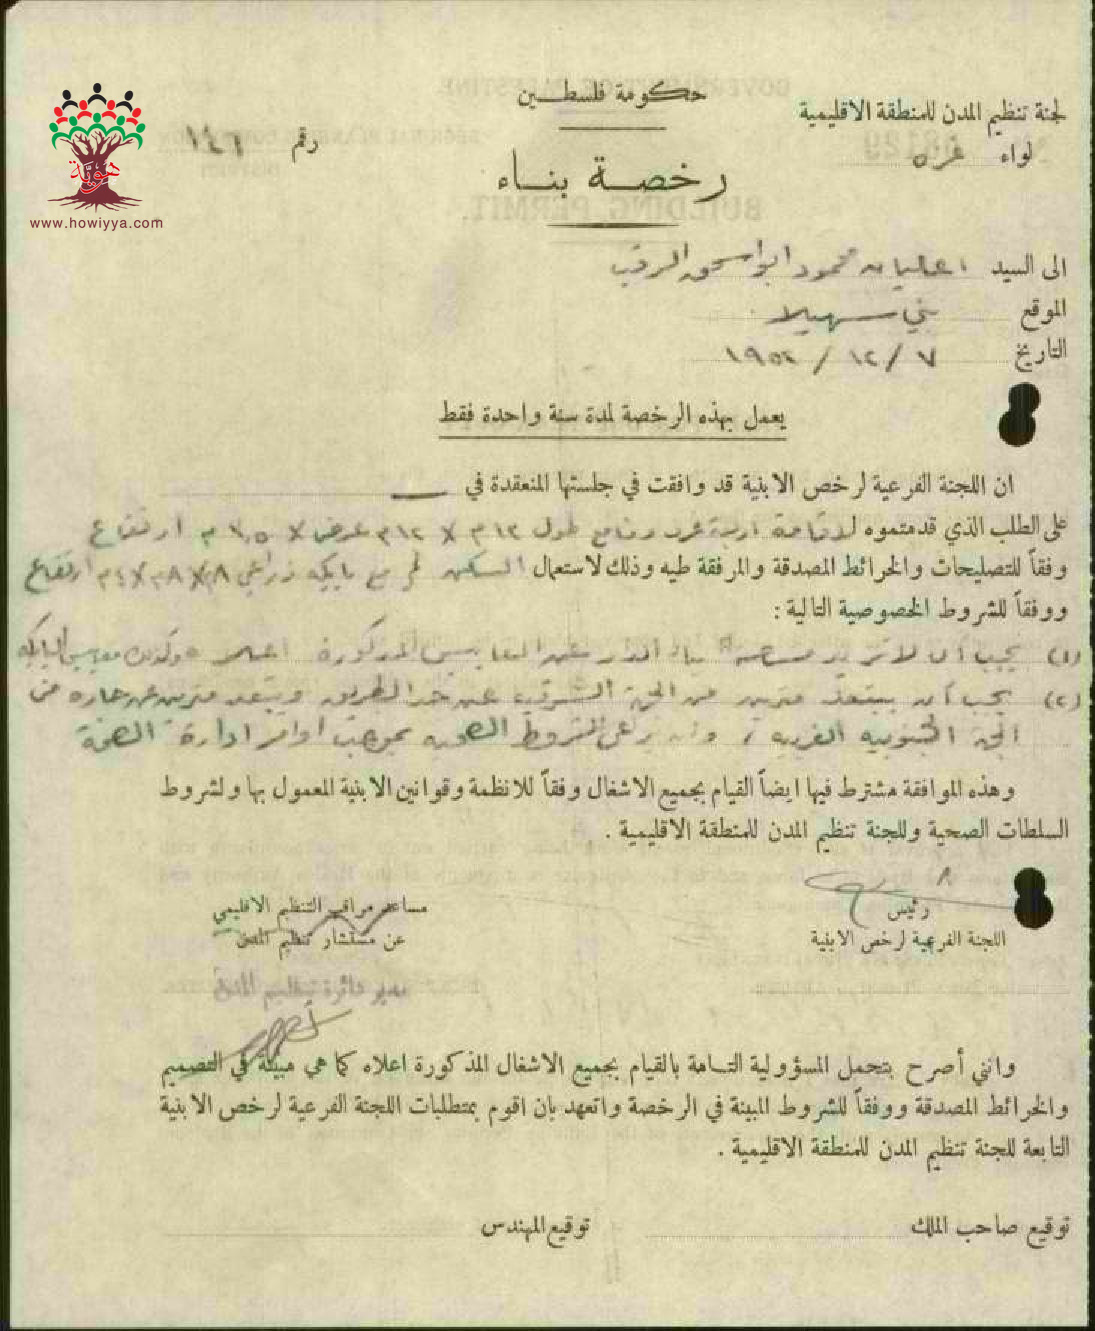 حكومة فلسطين
لجنة تنظيم المدن للمنطقة الاقليمية
لواء غزه
رقم ١٤٦
رخصة بناء
هوية
www.howiyya.com
الى السيد اعليان محمود ابو اسحق الرقب
الموقع بني سهيلا
التاريخ ٧ / ١٢ / ١٩٥٢
يعمل بهذه الرخصة لمدة سنة واحدة فقط
ان اللجنة الفرعية لرخص الابنية قد وافقت في جلستها المنعقدة في
على الطلب الذي قدمتموه لاقامة اربعة غرف طول ١٢م × ١٢م عرض × ٦,٥٠ م ارتفاع
وفقاً للتصليحات والخرائط المصدقة والمرفقة طيه وذلك لاستعمال السكن مع بايكه زراعي ٨م × ٨م × ٤م ارتفاع
ووفقاً للشروط الخصوصية التالية :
(١) يجب ان لا تزيد مساحة بناء الدار عن المقاييس المذكورة اعلاه وكذلك مقاييس البايكه
(٢) يجب ان يبتعد مترين من الجهة الشرقية عن حد الطريق ويبتعد مترين عن جاره من
الجهة الجنوبيه الغربيه ، وان يراعى الشروط الصحيه بموجب اوامر ادارة الصحة
وهذه الموافقة مشترط فيها ايضاً القيام بجميع الاشغال وفقاً للانظمة وقوانين الابنية المعمول بها ولشروط
السلطات الصحية وللجنة تنظيم المدن للمنطقة الاقليمية .
رئيس
اللجنة الفرعية لرخص الابنية
مساعد مراقب التنظيم الاقليمي
عن مستشار تنظيم المدن
مدير دائرة تنظيم المدن
وانني أصرح بتحمل المسؤولية التامة بالقيام بجميع الاشغال المذكورة اعلاه كما هي مبينة في التصميم
والخرائط المصدقة ووفقاً للشروط المبينة في الرخصة واتعهد بان اقوم بمتطلبات اللجنة الفرعية لرخص الابنية
التابعة للجنة تنظيم المدن للمنطقة الاقليمية .
توقيع صاحب الملك
توقيع المهندس